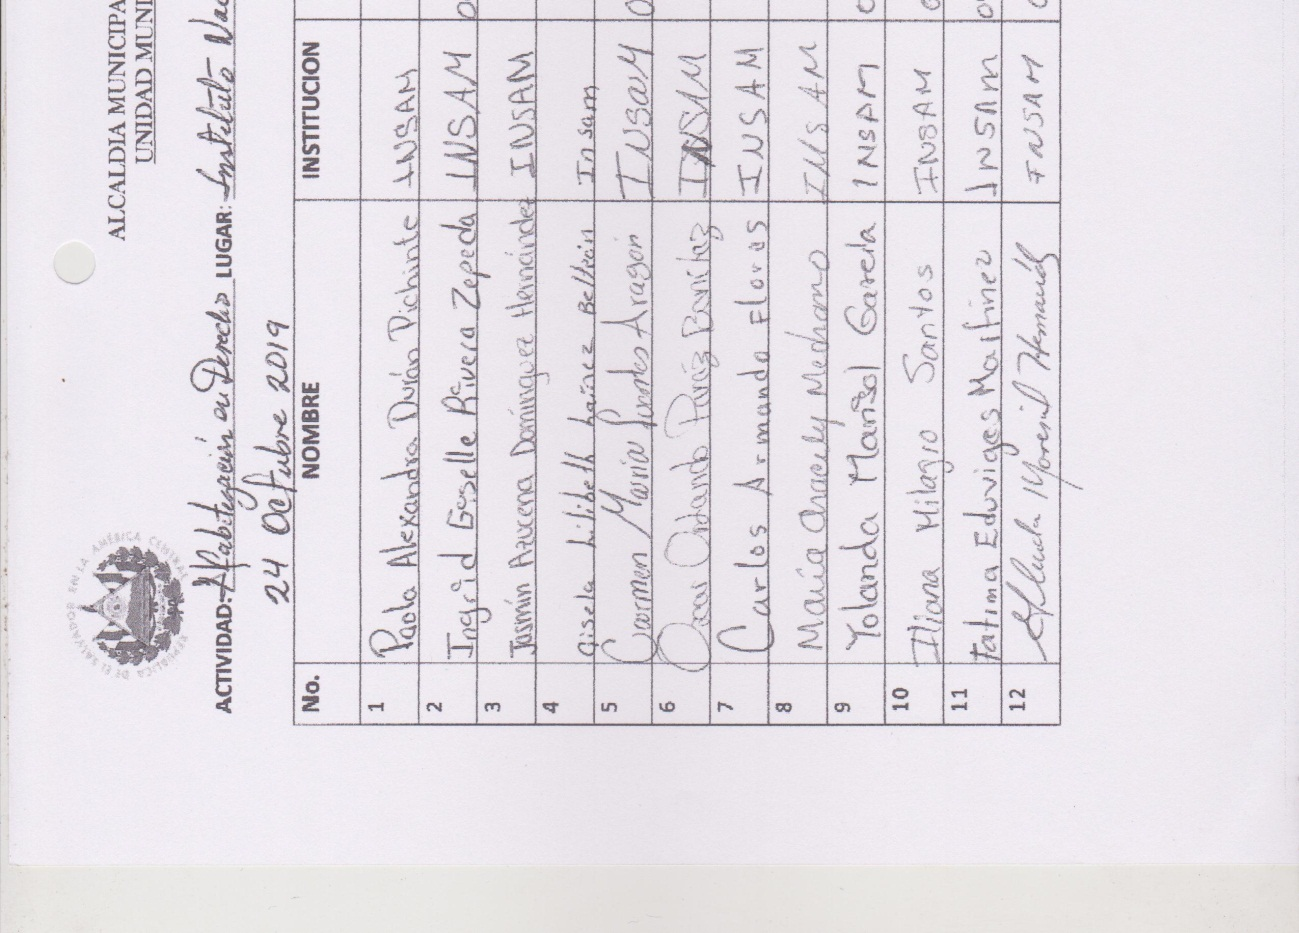 ALCALDIA MUNICIPA
UNIDAD MUNI
REPUBLICA DE EL SALVADOR EN LA AMERICA CENTRAL
ACTIVIDAD: Alfabetización en Derecho LUGAR: Instituto Nac
24 Octubre 2019
No. NOMBRE INSTITUCION
1 Paola Alexandra Durán Pichinte INSAM
2 Ingrid Gisselle Rivera Zepeda INSAM
3 Jasmín Azucena Domínguez Hernández INSAM
4 Gisela Lilibeth Laínez Beltrán Insam
5 Carmen Maria Aragón INSAM
6 Oscar Orlando Benítez INSAM
7 Carlos Armando Flores INSAM
8 María Aracely Medrano INSAM
9 Yolanda Marisol García INSAM
10 Iliana Milagro Santos INSAM
11 Fatima Eduviges Martinez INSAM
12 Hernández INSAM